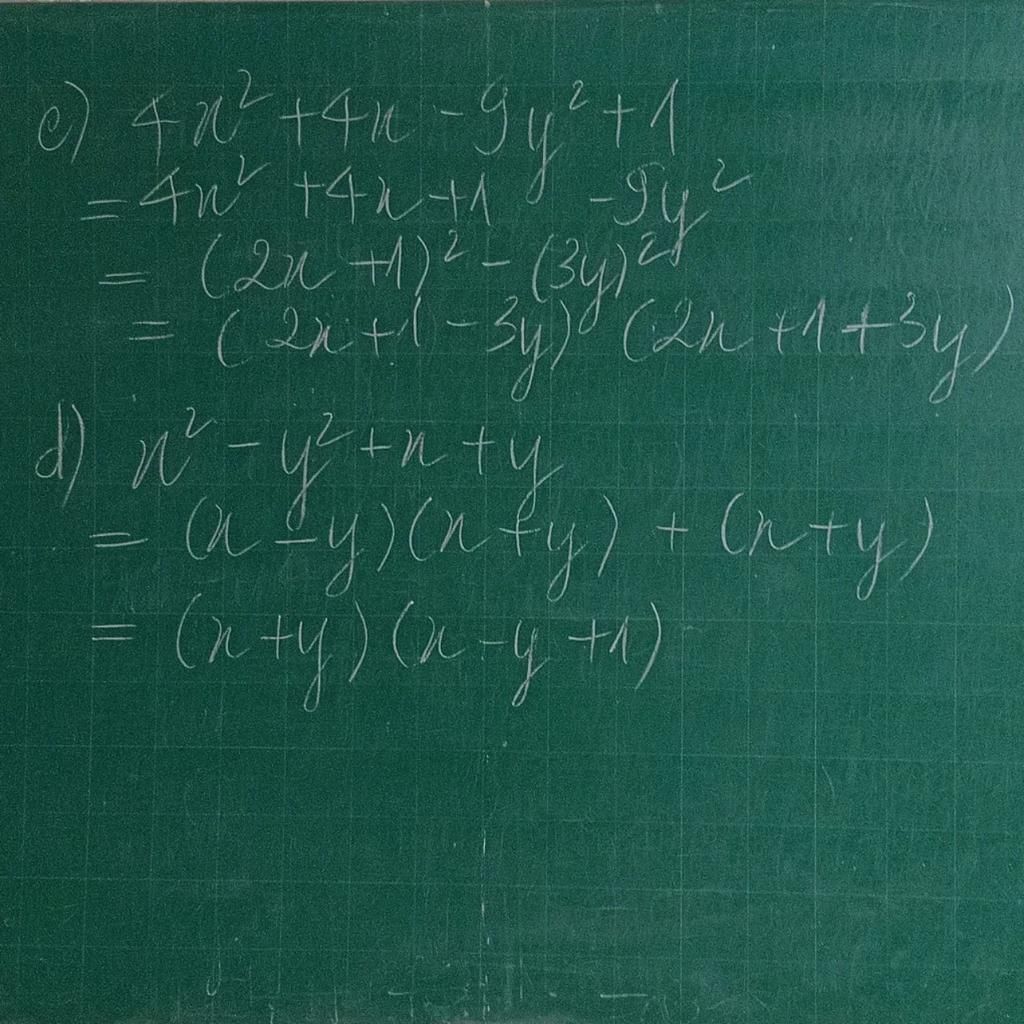 c) 4x² + 4x - 9y² + 1
= 4x² + 4x + 1 - 9y²
= (2x + 1)² - (3y)²
= (2x + 1 - 3y) (2x + 1 + 3y)
d) x² - y² + x + y
= (x - y)(x + y) + (x + y)
= (x + y) (x - y + 1)